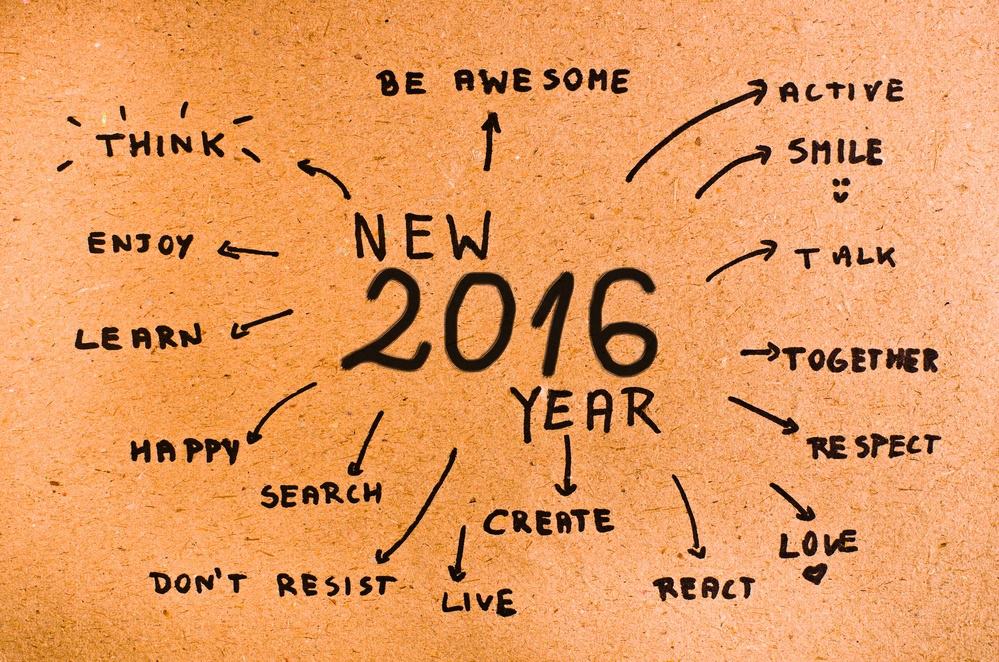 BE AWESOME
ACTIVE
THINK
SMILE
NEW
ENJOY
TALK
2016
LEARN
TOGETHER
YEAR
HAPPY
RESPECT
SEARCH
CREATE
LOVE
DON'T RESIST
LIVE
REACT